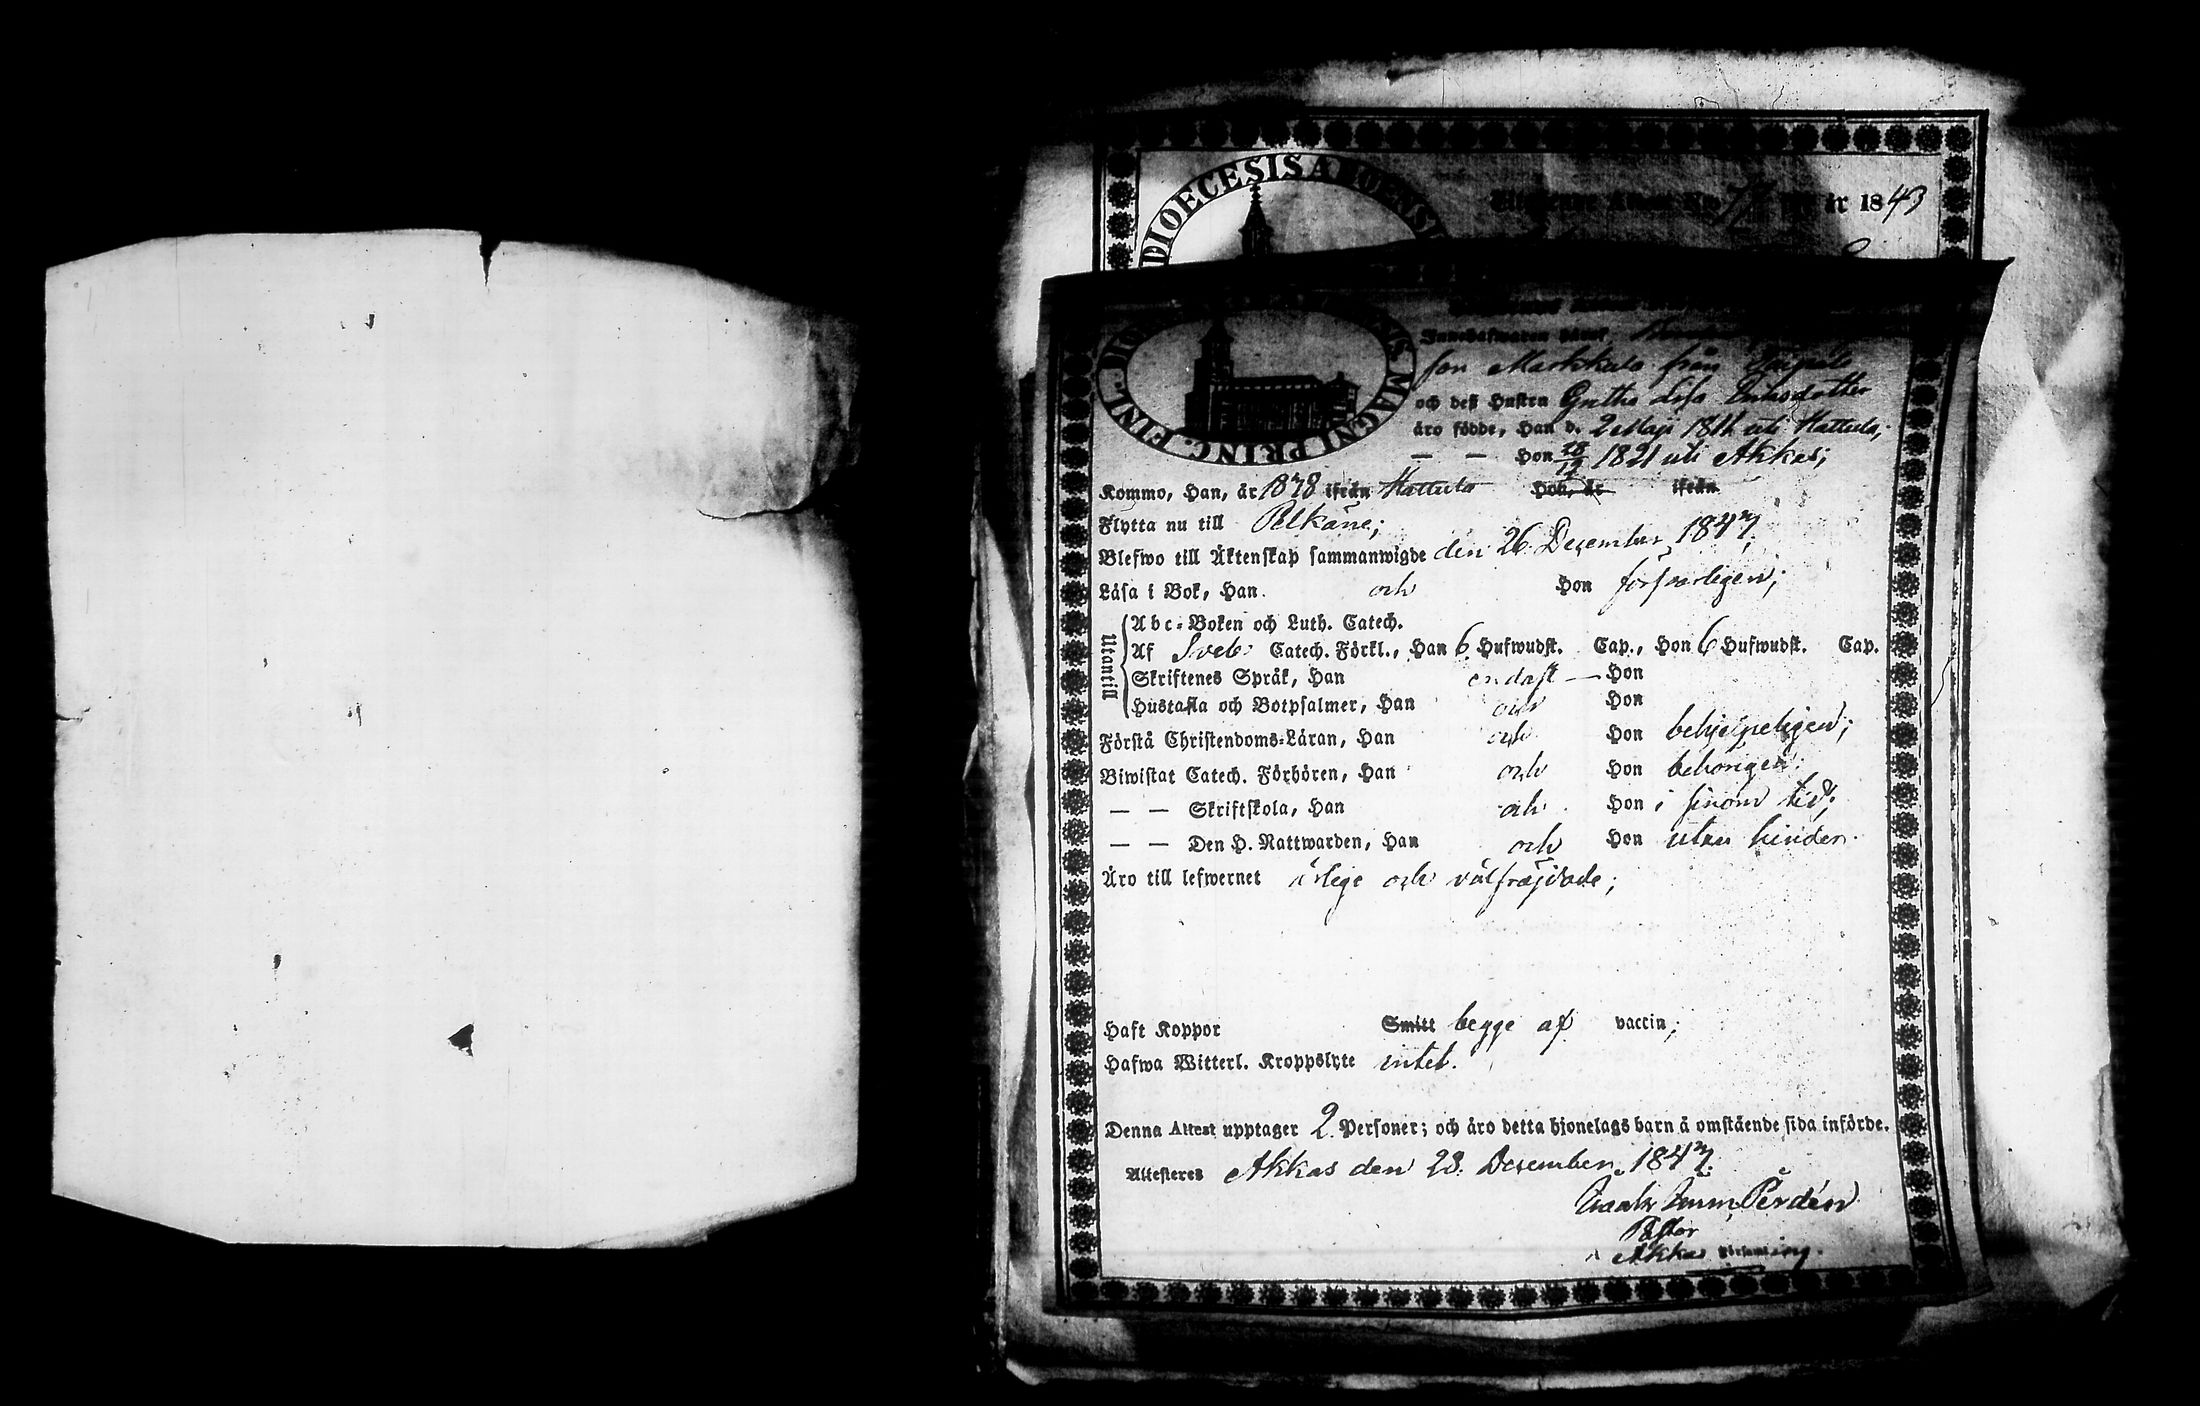 DIOECESIS ABOENSI
år 1843
FINL. DIO NSIS MAGNI PRINC.
Innehafwaren
son Markkula från
och deß Hustru Gretha Lisa
äro födde, Han d. 2 Maji 18 uti Hattula,
— — Hon 28/12 1821 uti Akkas;
Kommo, Han, år 18 8 ifrån Hattula Hon, år ifrån
Flytta nu till Pelkäne;
Blefwo till Äktenskap sammanwigde den 26 December 1847.
Läsa i Bok, Han och Hon försvarligen;
Utantill
Abc-Boken och Luth. Catech.
Af Sveb. Catech. Förkl., Han 6 Hufwudst. Cap., Hon 6 Hufwudst. Cap.
Skriftenes Språk, Han endast — Hon
Hustafla och Botpsalmer, Han och Hon
Förstå Christendoms-Läran, Han och Hon behjelpeligen;
Biwistat Catech. Förhören, Han och Hon behörigen.
— — Skriftskola, Han och Hon i sinom tid;
— — Den H. Nattwarden, Han och Hon utan hinder.
Äro till lefwernet ärlige och välfräjdade;
Haft Koppor Smitt begge af vaccin;
Hafwa Witterl. Kroppslyte intet.
Denna Attest upptager 2 Personer; och äro detta hjonelags barn å omstående sida införde.
Attesteres Akkas den 28. December 1847.
Isaak Imm. Perdén
Pastor
Akkas Församling.